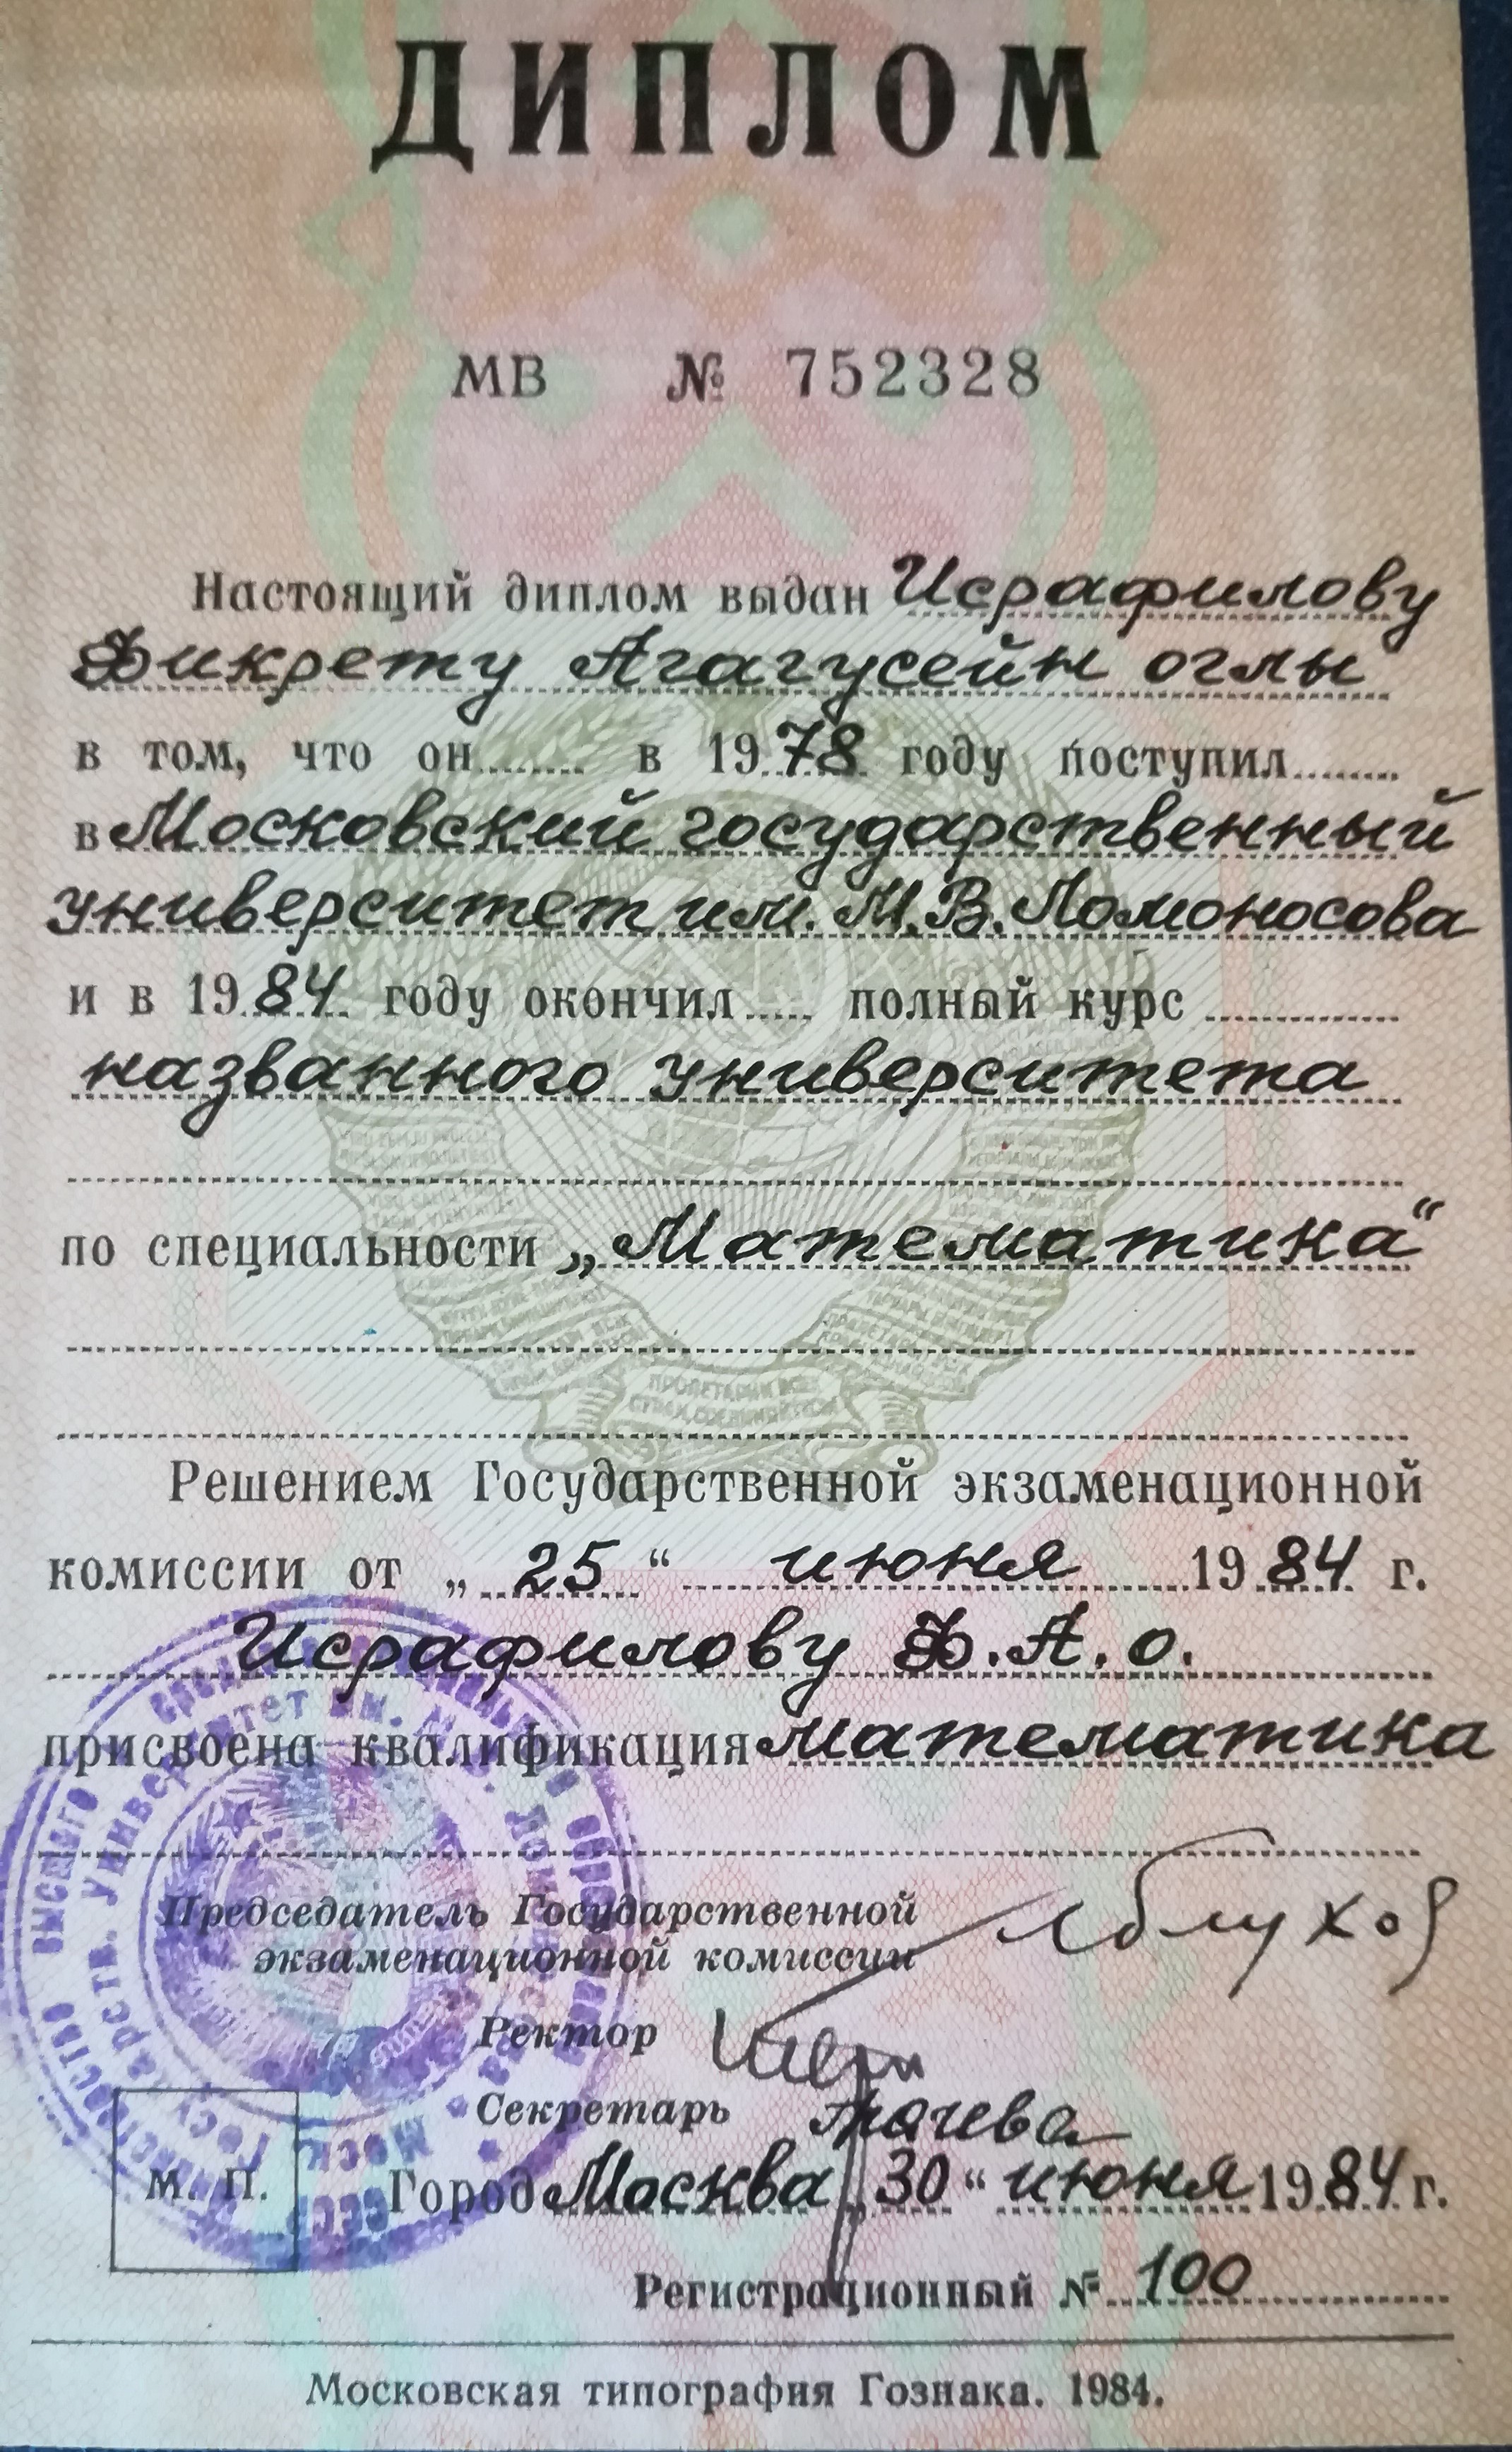 ДИПЛОМ
МВ № 752328
Настоящий диплом выдан Исрафилову
Фикрету Агагусейн оглы
в том, что он........ в 1978 году поступил........
в Московский государственный
университет им. М.В. Ломоносова
и в 1984 году окончил..... полный курс
названного университета
по специальности „Математика“
Решением Государственной экзаменационной
комиссии от „25“ июня 1984 г.
Исрафилову Ф.А.о.
присвоена квалификация математика
Председатель Государственной
экзаменационной комиссии
Ректор
Секретарь
М. П.
Город Москва „30“ июня 1984 г.
Регистрационный № 100
Московская типография Гознака. 1984.